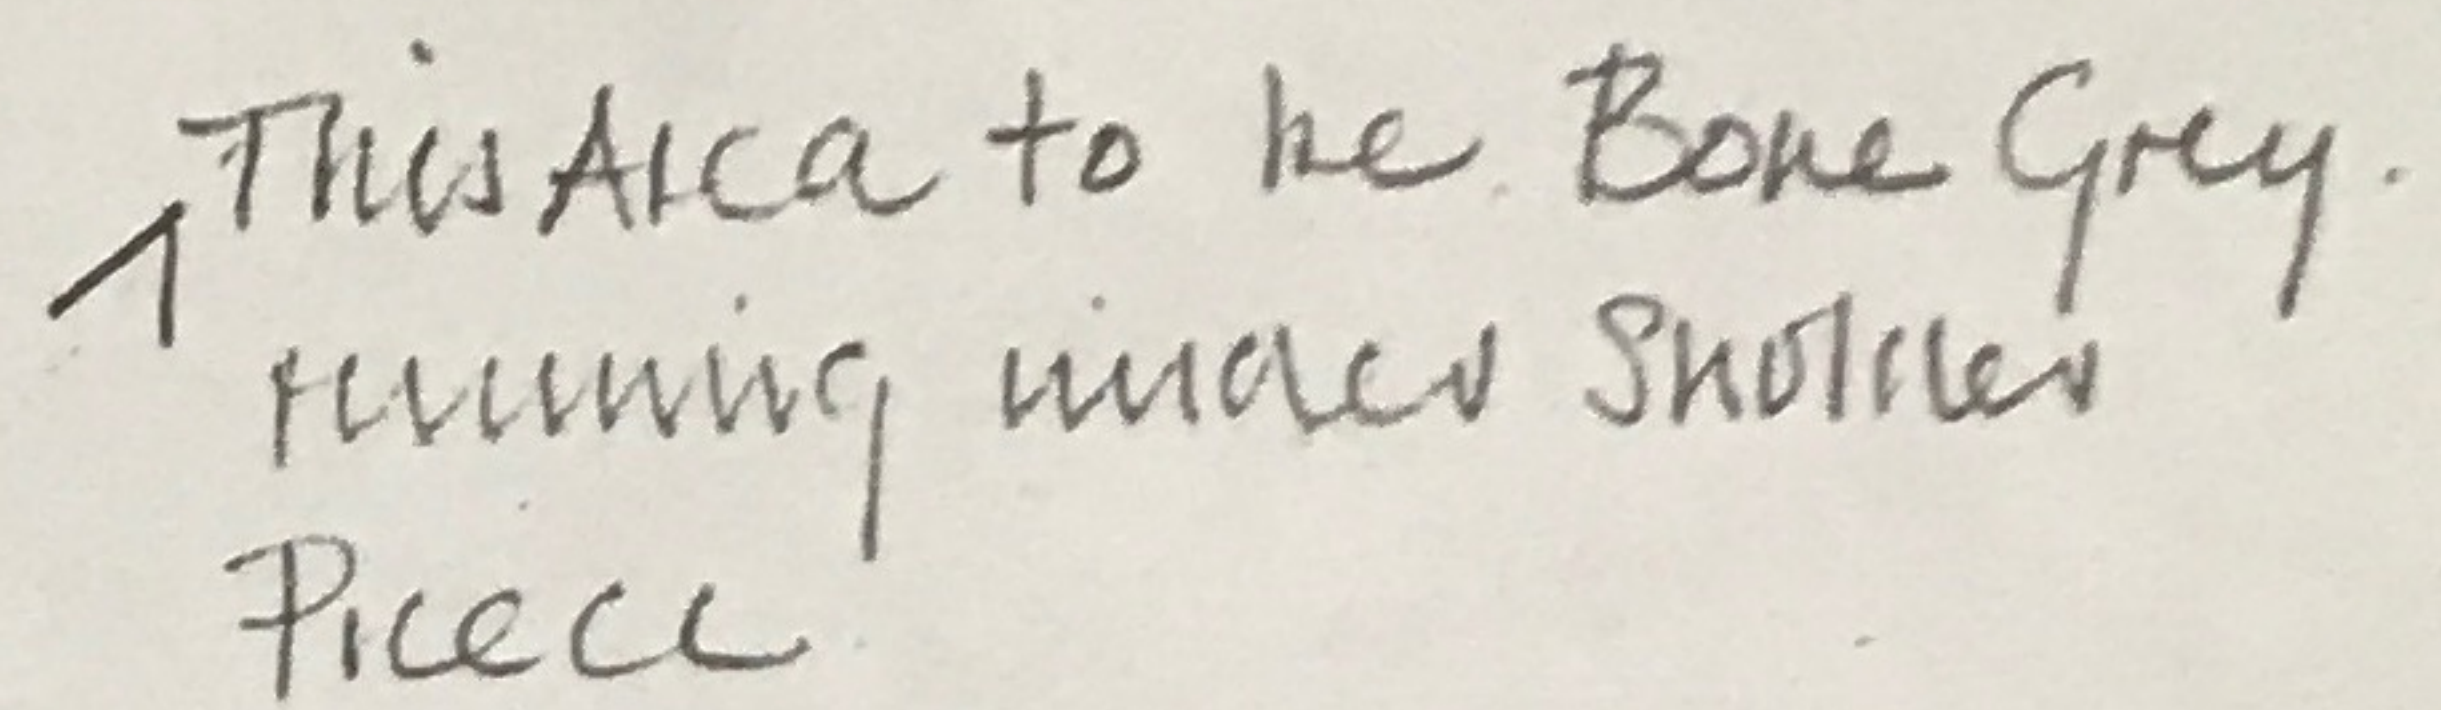 This Area to be Bone Grey.
running under Sholder
Piece